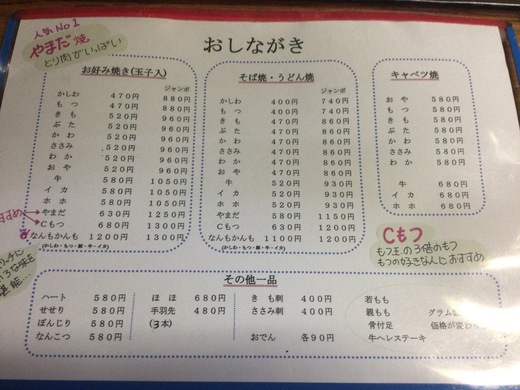 人気No1
やまだ焼
とり肉がいっぱい
おしながき
お好み焼き(玉子入)
ジャンボ
かしわ 470円 880円
もつ 470円 880円
きも 520円 960円
ぶた 520円 960円
かわ 520円 960円
ささみ 520円 960円
わか 520円 960円
おや 520円 960円
牛 580円 1050円
イカ 580円 1050円
ホホ 580円 1050円
やまだ 630円 1250円
Cもつ 680円 1300円
なんもかんも 1200円 1300円
(かしわ・もつ・豚・牛・イカ)
そば焼・うどん焼
ジャンボ
かしわ 400円 740円
もつ 400円 740円
きも 470円 860円
ぶた 470円 860円
かわ 470円 860円
ささみ 470円 860円
わか 470円 860円
おや 470円 860円
牛 520円 930円
イカ 520円 930円
ホホ 520円 930円
やまだ 580円 1150円
Cもつ 630円 1200円
なんもかんも 1100円 1200円
(かしわ・もつ・豚・牛・イカ)
キャベツ焼
おや 580円
もつ 580円
きも 580円
ぶた 580円
かわ 580円
ささみ 580円
わか 580円
牛 680円
イカ 680円
ホホ 680円
すすめ
Cもつ
の3倍のもつ
もつの好きな人におすすめ
その他一品
ハート 580円
せせり 580円
ぼんじり 580円
なんこつ 580円
ほほ 680円
手羽先 480円
(3本)
きも刺 400円
ささみ刺 400円
おでん 各90円
若もも
親もも グラム
骨付足 価格が変わ
牛ヘレステーキ